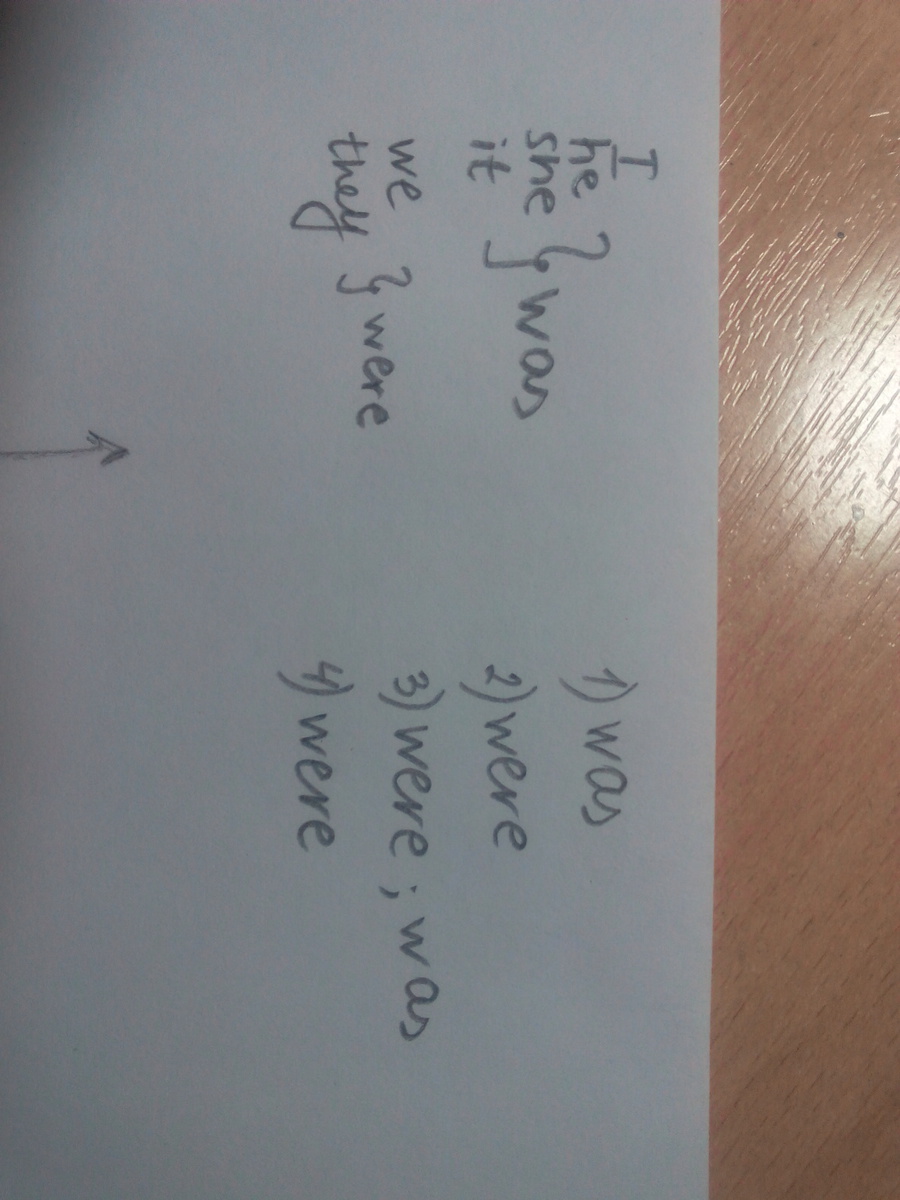 I
he
she } was
it
we
they } were
1) was
2) were
3) were; was
4) were